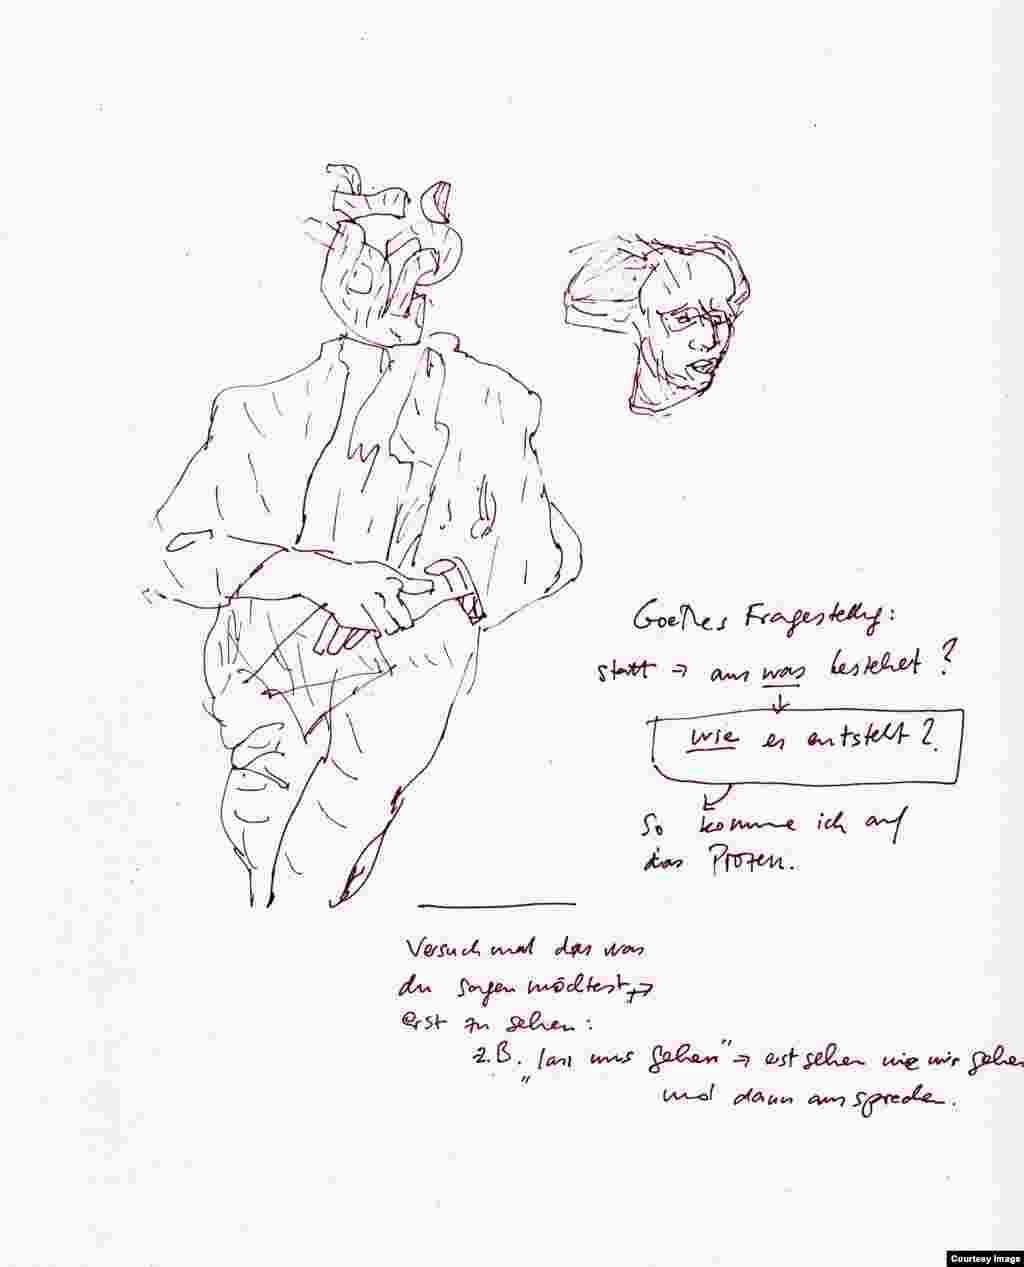 Goethes Fragestellg:
statt → aus was bestehet?
wie es entsteht?
So komme ich auf
das Prozess.
Versuch mal das was
du sagen möchtest →
erst zu sehen:
z.B. "lass uns gehen" → erst sehen wie wir gehen
und dann aussprechen.
Courtesy Image